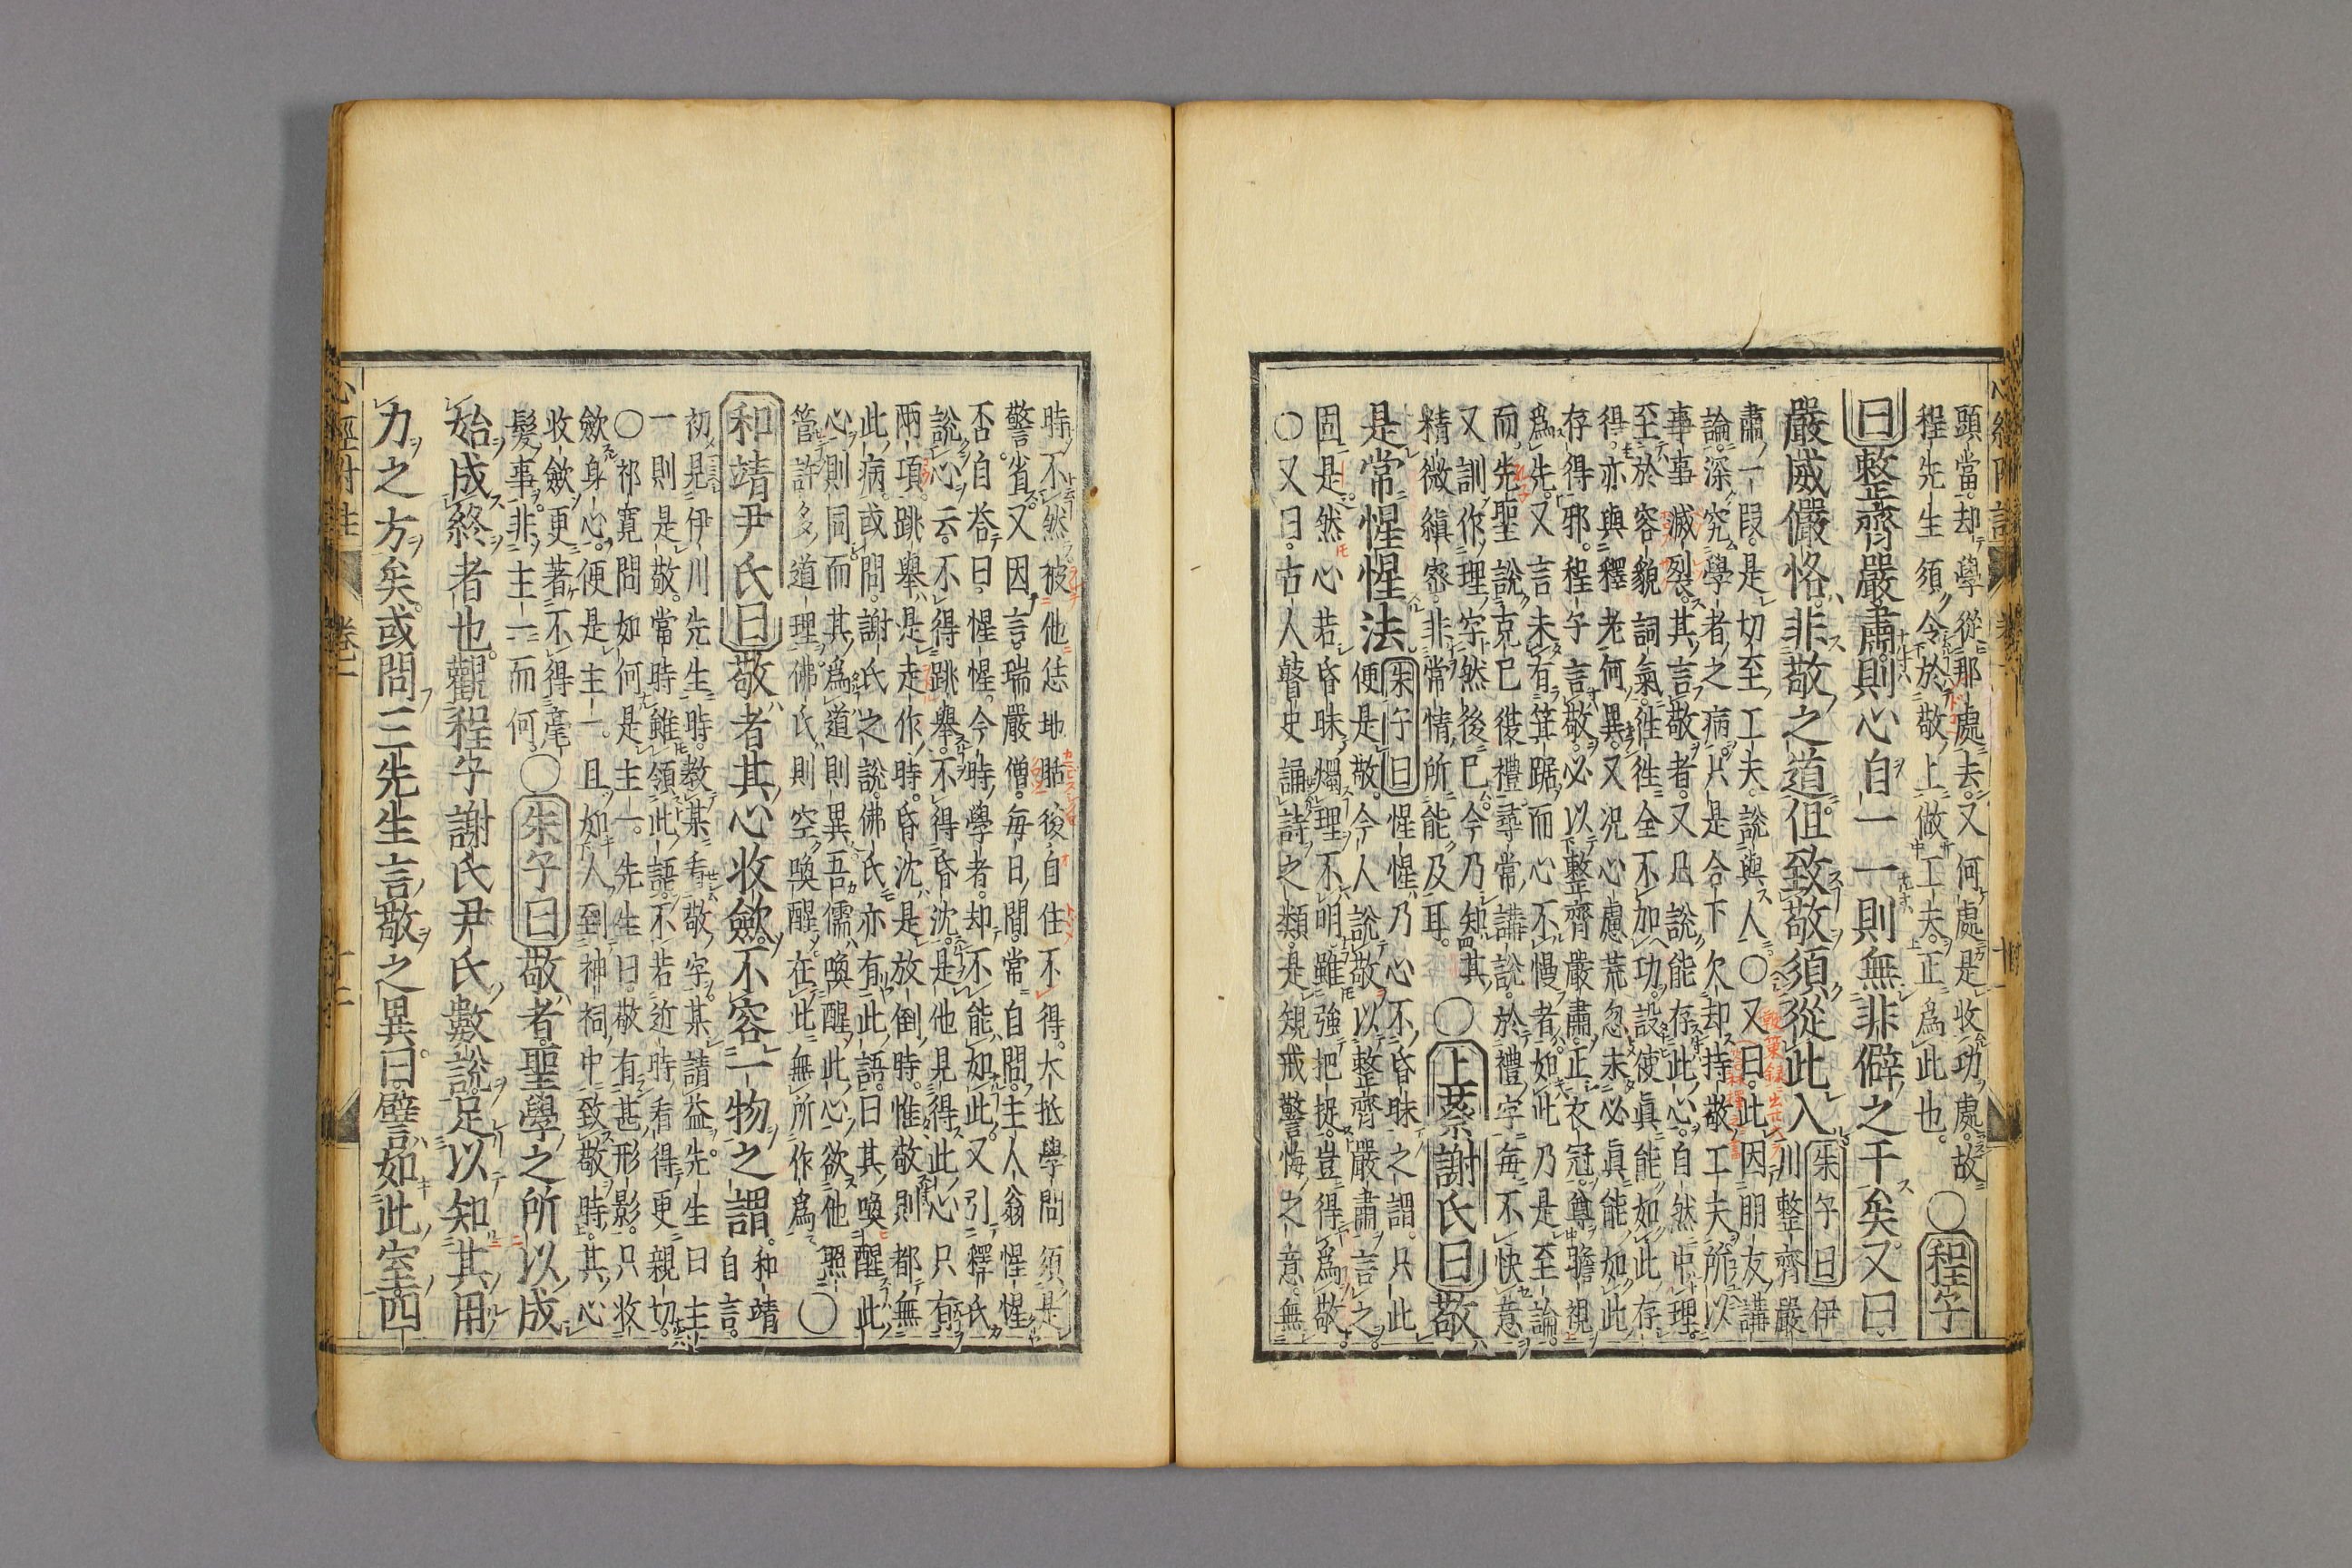 頭當却學從那處去又何處是收功處故
程先生須令於敬上做工夫正爲此也○程子
曰整齊嚴肅則心自一一則無非僻之干矣又曰
嚴威儼恪非敬之道但致敬須從此入朱子曰伊
川整齊嚴
肅一段是切至工夫說與人○又曰此因朋友講
論深究學者之病只是合下欠却持敬工夫所以
事事滅裂其言敬者又只說能存此心自然中理
至於容貌詞氣往往全不加功設使眞能如此存
得亦與釋老何異又況心慮荒忽未必眞能如此
存得邪程子言敬必以整齊嚴肅正衣冠尊瞻視
爲先又言未有箕踞而心不慢者如此乃是至論
而先聖說克己復禮尋常講說於禮字每不快意
又訓作理字然後已今乃知其
精微縝密非常情所能及耳○上蔡謝氏曰敬
是常惺惺法朱子曰惺惺乃心不昏昧之謂只此
便是敬今人說敬以整齊嚴肅言之
固是然心若昏昧燭理不明雖強把捉豈得爲敬
○又曰古人瞽史誦詩之類是規戒警悔之意無
時不然被他恁地聒後自住不得大抵學問須是
警省又因言瑞嚴僧每日間常自問主人翁惺惺
否自答曰惺惺今時學者却不能如此又引釋氏
說心云不得跳擧不得昏沈是他見得此心只有
兩項跳擧是走作時昏沈是放倒時惟敬則都無
此病或問謝氏之說佛氏亦有此語曰其喚醒此
心則同而其爲道則異吾儒喚醒此心欲他照
管許多道理佛氏則空喚醒在此無所作爲○
和靖尹氏曰敬者其心收斂不容一物之謂和靖
自言
初見伊川先生時教某看敬字某請益先生曰主
一則是敬當時雖領此語不若近時看得更親切
○祁寛問如何是主一先生曰敬有甚形影只收
斂身心便是主一且如人到神祠中致敬時其心
收斂更著不得毫
髮事非主一而何○朱子曰敬者聖學之所以成
始成終者也觀程子謝氏尹氏數說足以知其用
力之方矣或問三先生言敬之異曰譬如此室四
心經附註 卷二 十二